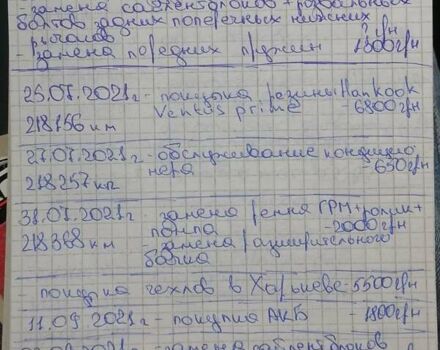 - замена сайлентблоков + розвальных
болтов задних поперечных нижних
рычагов
- замена передних пружин 1800грн
25.07.2021г - покупка резины Hankook
218156 км Ventus prime - 6800грн
27.07.2021г - обслуживание кондицио
218257км нера - 650грн
31.07.2021г - замена ремня ГРМ + ролик +
помпа - 2000грн
218368 км замена расширительного
бачка
- покупка чехлов в Харькове - 5500грн
11.09.2021г - покупка АКБ - 1800грн
замена сайлентблоков